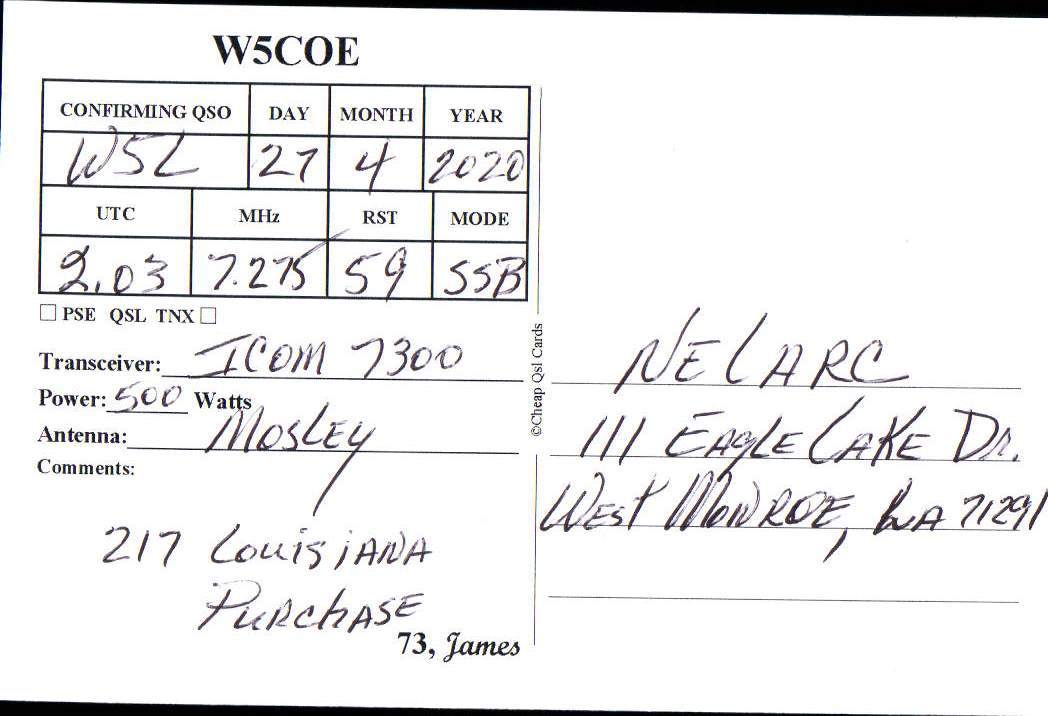 W5COE
CONFIRMING QSO DAY MONTH YEAR
W5L 27 4 2020
UTC MHz RST MODE
2.03 7.275 59 SSB
☐ PSE QSL TNX ☐
Transceiver: ICOM 7300
Power: 500 Watts
Antenna: MOSLEY
Comments:
217 LOUISIANA
PURCHASE
73, James
©Cheap Qsl Cards
NELARC
111 EAGLE LAKE DR.
WEST MONROE, LA 71291